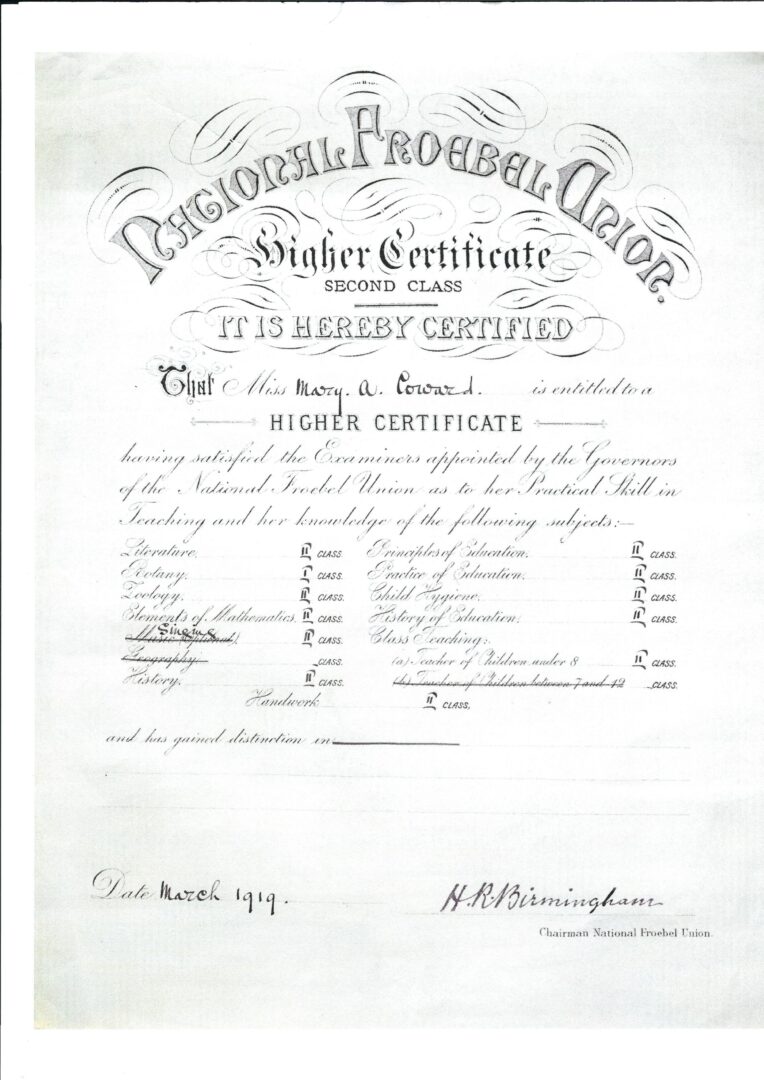 NATIONAL FROEBEL UNION.
Higher Certificate
SECOND CLASS
IT IS HEREBY CERTIFIED
That Miss Mary. A. Coward. is entitled to a
HIGHER CERTIFICATE
having satisfied the Examiners appointed by the Governors
of the National Froebel Union as to her Practical Skill in
Teaching and her knowledge of the following subjects:—
Literature. II CLASS. Principles of Education. II CLASS.
Botany. I CLASS. Practice of Education. II CLASS.
Zoology. II CLASS. Child Hygiene. II CLASS.
Elements of Mathematics. II CLASS. History of Education. II CLASS.
Singing
Music (optional) II CLASS. Class Teaching:
Geography. CLASS. (a) Teacher of Children under 8 II CLASS.
History. II CLASS. (b) Teacher of Children between 7 and 12 CLASS.
Handwork II CLASS.
and has gained distinction in
Date March 1919. H. R. Birmingham
Chairman National Froebel Union.